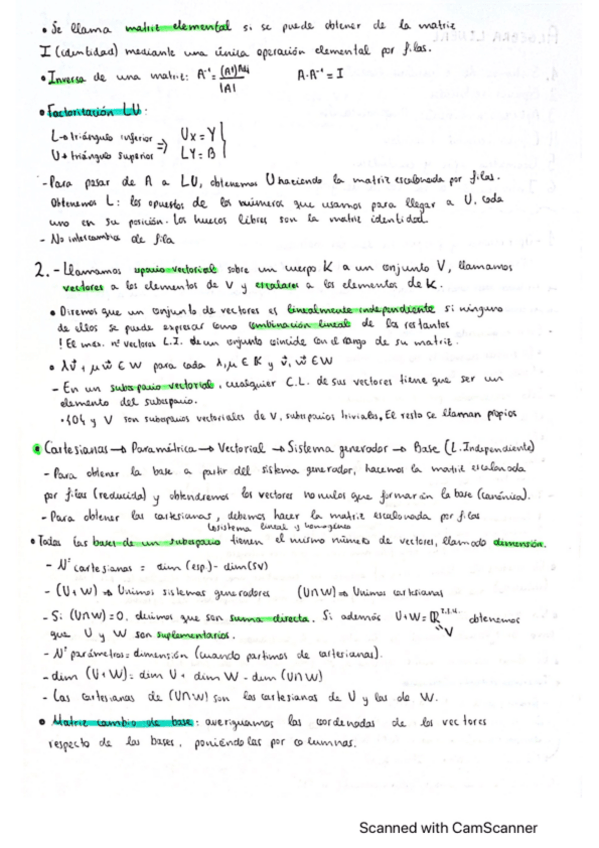 • Se llama matriz elemental si se puede obtener de la matriz
I (identidad) mediante una única operación elemental por filas.
• Inversa de una matriz: A⁻¹ = (Aᵗ)ᴬᵈʲ / |A| A·A⁻¹ = I
• Factorización LU:
L → triángulo inferior => Ux = Y
U → triángulo superior LY = B
- Para pasar de A a LU, obtenemos U haciendo la matriz escalonada por filas.
Obtenemos L: los opuestos de los números que usamos para llegar a U, cada
uno en su posición. Los huecos libres son la matriz identidad.
- No intercambia de fila
2. - Llamamos espacio vectorial sobre un cuerpo K a un conjunto V, llamamos
vectores a los elementos de V y escalares a los elementos de K.
• Diremos que un conjunto de vectores es linealmente independiente si ninguno
de ellos se puede expresar como combinación lineal de los restantes
! El max. nº vectores L.I. de un conjunto coincide con el rango de su matriz.
• λv⃗ + μw⃗ ∈ W para cada λ, μ ∈ K y v⃗, w⃗ ∈ W
- En un subespacio vectorial, cualquier C.L. de sus vectores tiene que ser un
elemento del subespacio.
· {0} y V son subespacios vectoriales de V, subespacios triviales, El resto se llaman propios
• Cartesianas → Paramétrica → Vectorial → Sistema generador → Base (L.Independiente)
- Para obtener la base a partir del sistema generador, hacemos la matriz escalonada
por filas (reducida) y obtendremos los vectores no nulos que formarán la base (canónica).
- Para obtener las cartesianas, debemos hacer la matriz escalonada por filas
sistema lineal y homogéneo
• Todas las bases de un subespacio tienen el mismo número de vectores, llamado dimensión.
- Nº cartesianas = dim (esp.) - dim (SV)
- (U+W) => Unimos sistemas generadores (U∩W) => Unimos cartesianas
- Si (U∩W) = 0, decimos que son suma directa. Si además U+W = ℝ²·³·⁴· obtenemos
"V
que U y W son suplementarios.
- Nº parámetros = dimensión (cuando partimos de cartesianas).
- dim (U+W) = dim U + dim W - dim (U∩W)
- Las cartesianas de (U∩W) son las cartesianas de U y las de W.
• Matriz cambio de base: averiguamos las coordenadas de los vectores
respecto de las bases, poniéndolas por columnas.
Scanned with CamScanner